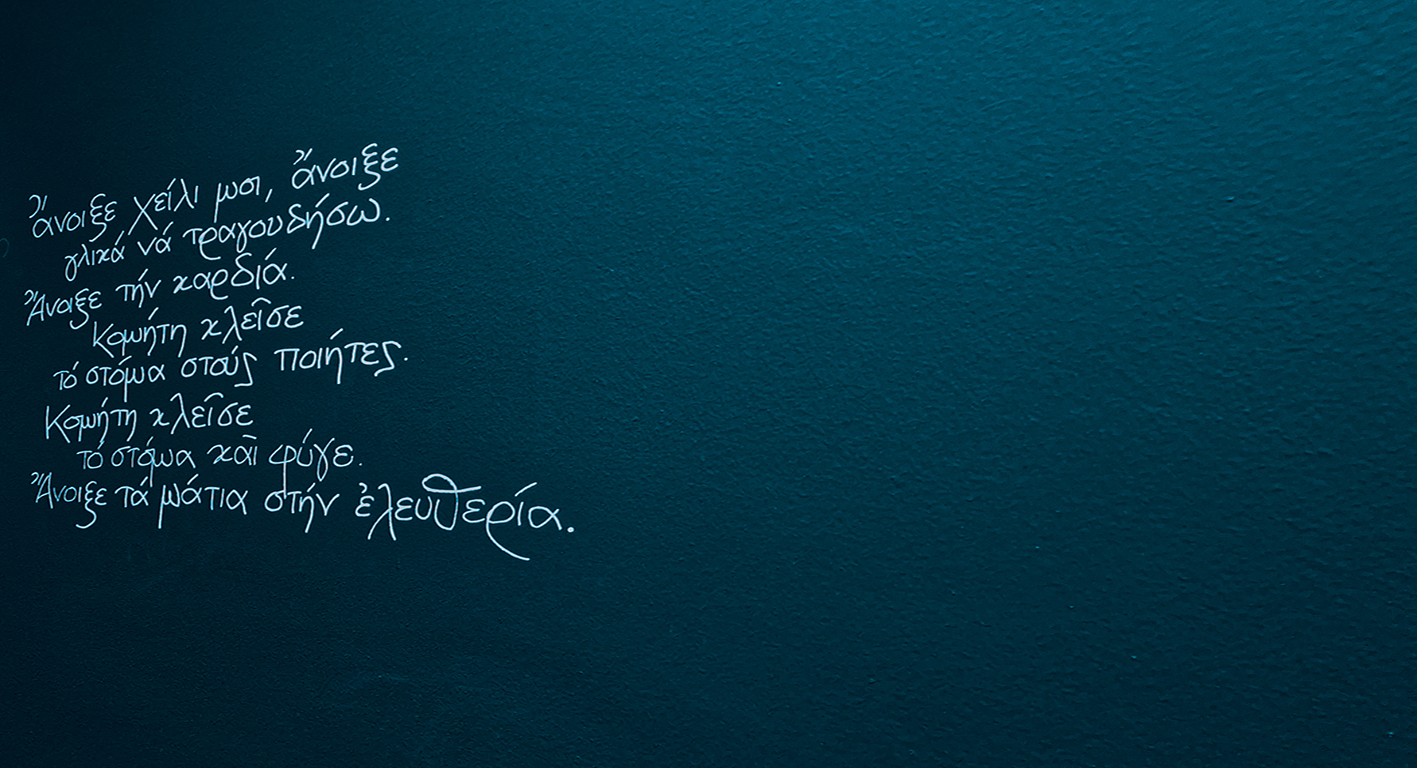 Ἄνοιξε χείλι μοι, ἄνοιξε
γλικά νά τραγουδήσω.
Ἄνοιξε τήν καρδιά.
Κομήτη κλεῖσε
τό στόμα στούς ποιήτες.
Κομήτη κλεῖσε
τό στόμα καὶ φύγε.
Ἄνοιξε τά μάτια στήν ἐλευθερία.